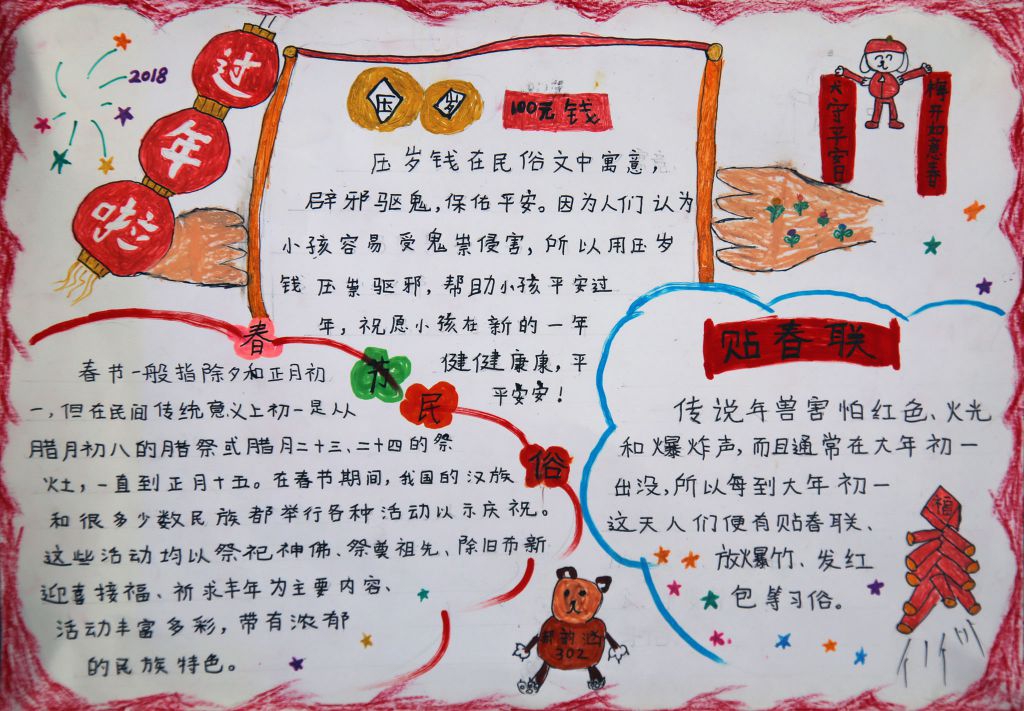 2018
过年啦
压岁
100元钱
压岁钱在民俗文中寓意，
辟邪驱鬼，保佑平安。因为人们认为
小孩容易受鬼祟侵害，所以用压岁
钱压祟驱邪，帮助小孩平安过
年，祝愿小孩在新的一年
健健康康，平
平安安！
犬守平安日
梅开如意春
春节民俗
春节一般指除夕和正月初
一，但在民间传统意义上初一是从
腊月初八的腊祭或腊月二十三、二十四的祭
灶，一直到正月十五。在春节期间，我国的汉族
和很多少数民族都举行各种活动以示庆祝。
这些活动均以祭祀神佛、祭奠祖先、除旧布新
迎喜接福、祈求丰年为主要内容、
活动丰富多彩，带有浓郁
的民族特色。
贴春联
传说年兽害怕红色、火光
和爆炸声，而且通常在大年初一
出没，所以每到大年初一
这天人们便有贴春联、
放爆竹、发红
包等习俗。
福
302